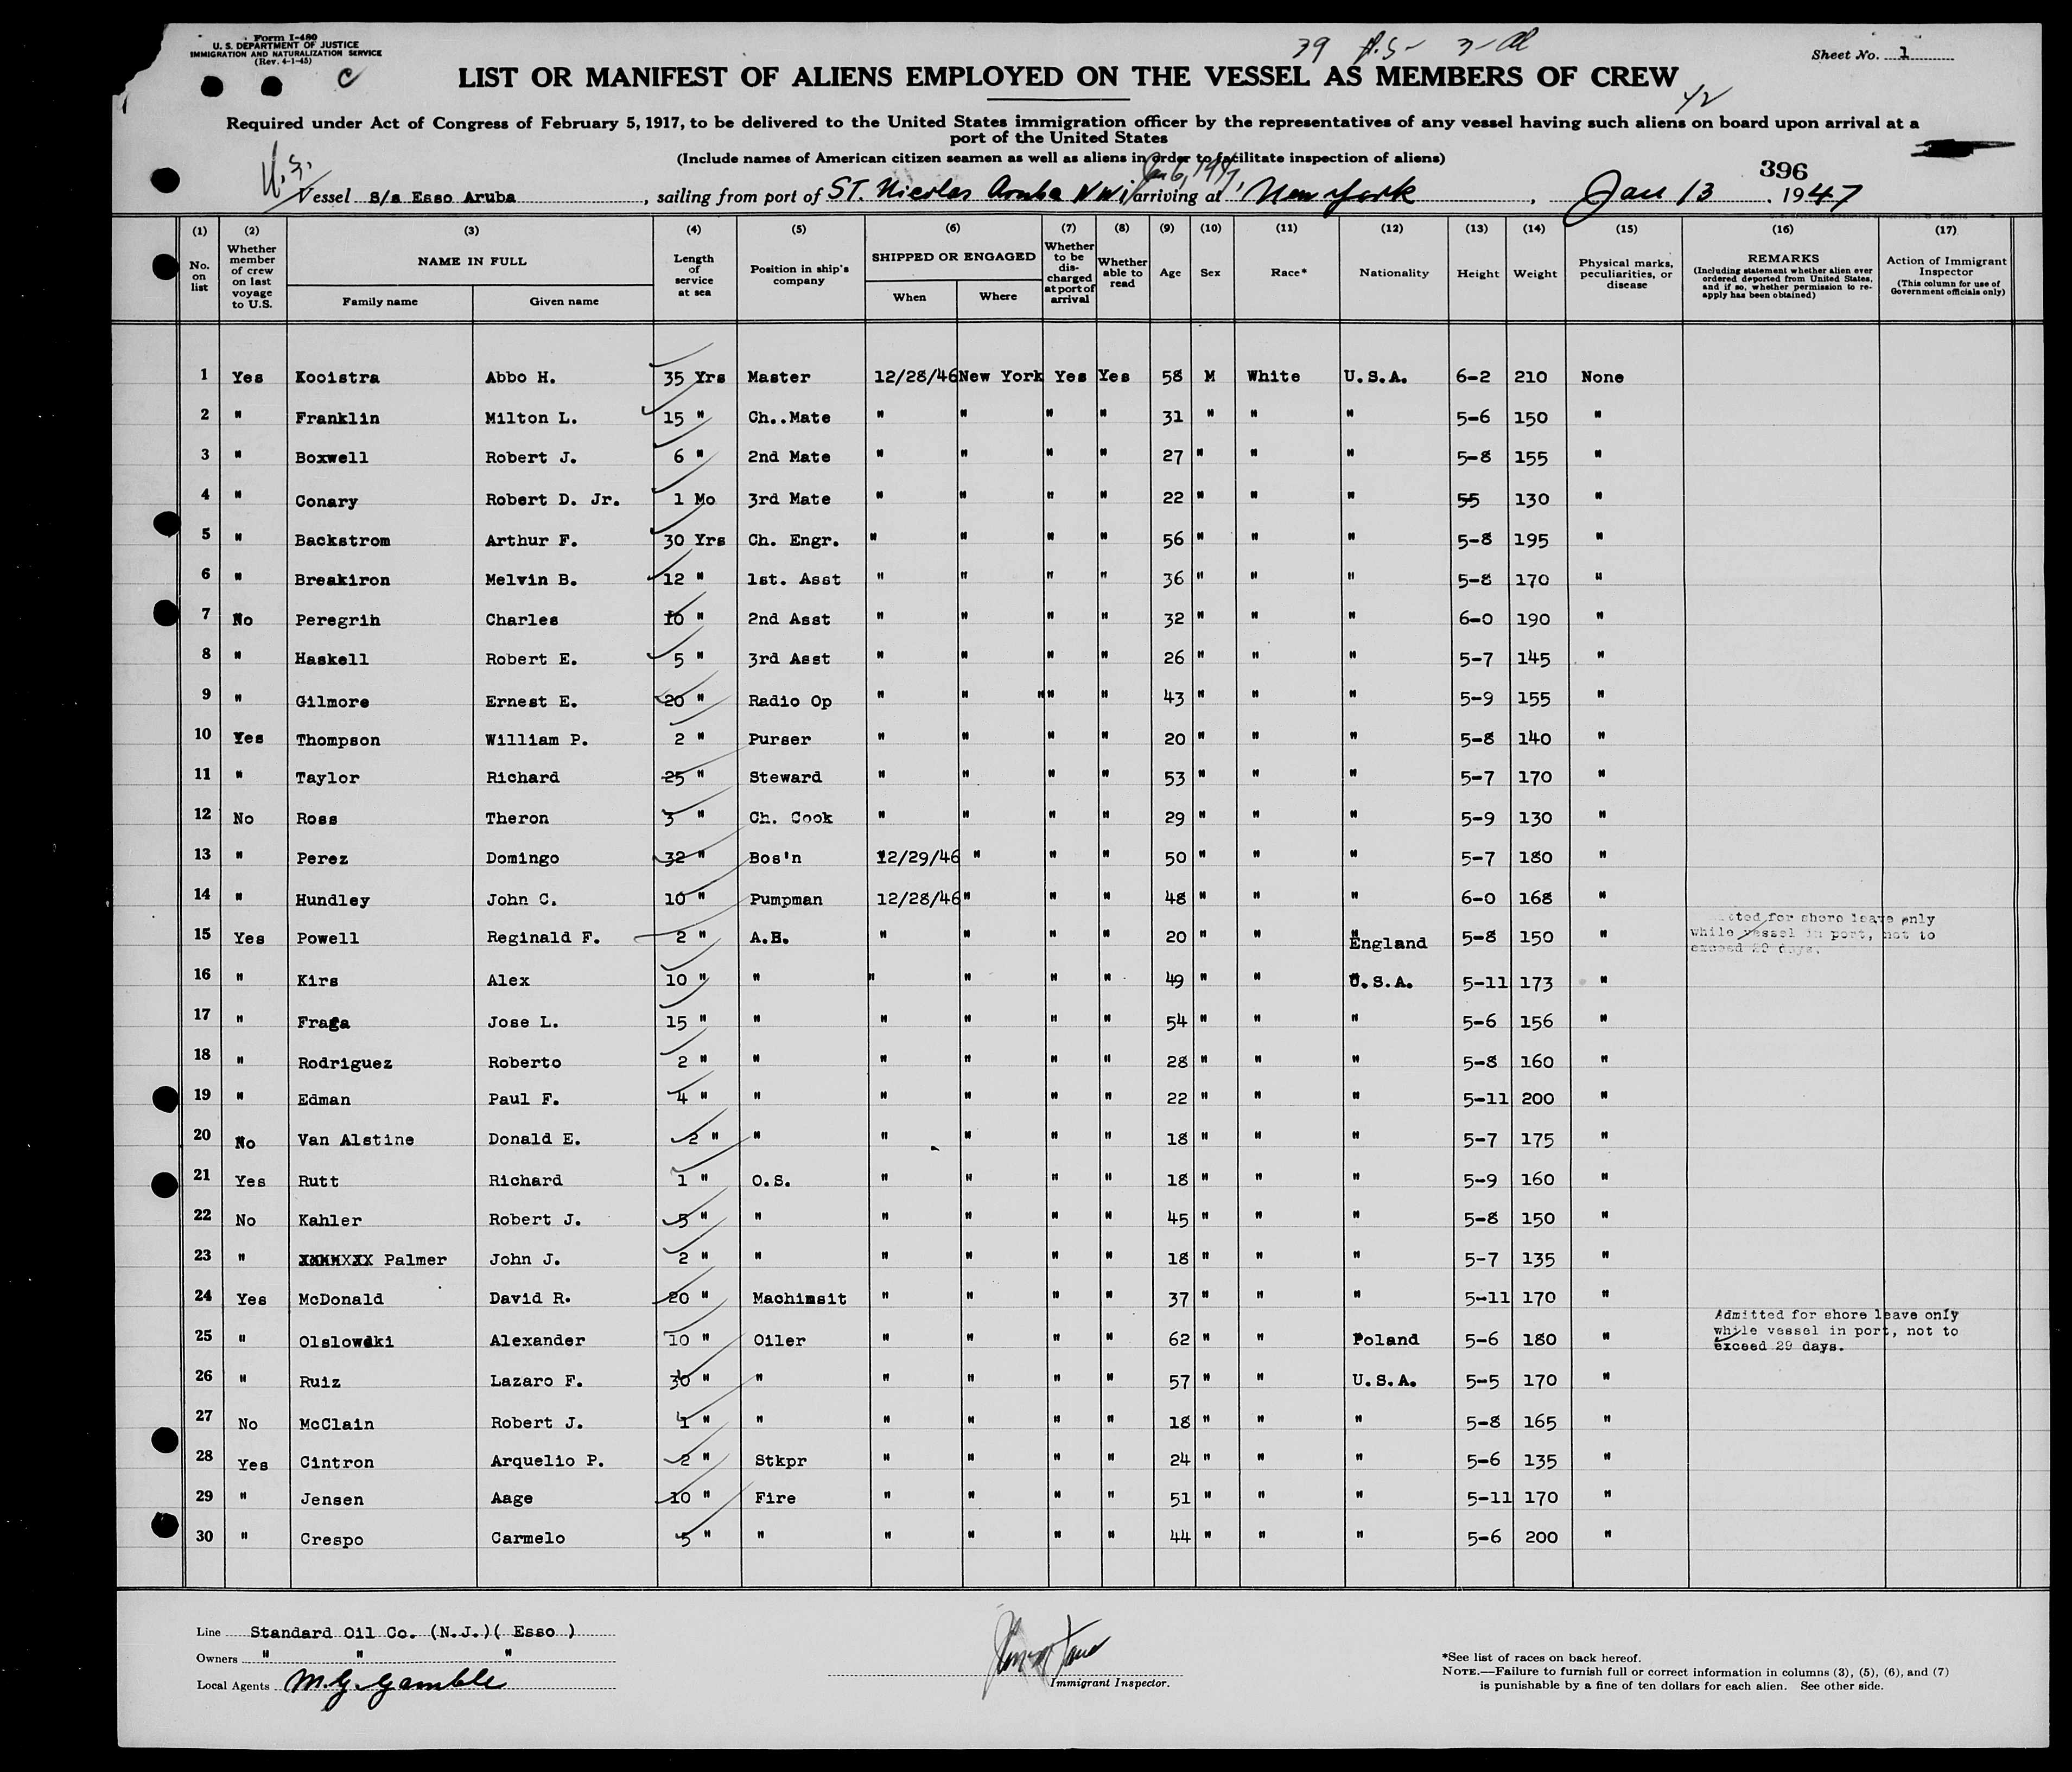 Form I-480
U. S. DEPARTMENT OF JUSTICE
IMMIGRATION AND NATURALIZATION SERVICE
(Rev. 4-1-45)
C
39 A.S- 3-
Sheet No. 1
LIST OR MANIFEST OF ALIENS EMPLOYED ON THE VESSEL AS MEMBERS OF CREW
42
Required under Act of Congress of February 5, 1917, to be delivered to the United States immigration officer by the representatives of any vessel having such aliens on board upon arrival at a
port of the United States
(Include names of American citizen seamen as well as aliens in order to facilitate inspection of aliens)
U.S.
Jan 6, 1947
396
Vessel S/s Esso Aruba, sailing from port of ST. Nicolas Aruba NWI, arriving at New York, Jan 13, 1947
(1) (2) (3) (4) (5) (6) (7) (8) (9) (10) (11) (12) (13) (14) (15) (16) (17)
No. on list
Whether member of crew on last voyage to U.S.
NAME IN FULL
Family name Given name
Length of service at sea
Position in ship's company
SHIPPED OR ENGAGED
When Where
Whether to be discharged at port of arrival
Whether able to read
Age
Sex
Race*
Nationality
Height
Weight
Physical marks, peculiarities, or disease
REMARKS
(Including statement whether alien ever ordered deported from United States, and if so, whether permission to reapply has been obtained)
Action of Immigrant Inspector
(This column for use of Government officials only)
1 Yes Kooistra Abbo H. 35 Yrs Master 12/28/46 New York Yes Yes 58 M White U.S.A. 6-2 210 None
2 " Franklin Milton L. 15 " Ch..Mate " " " " 31 " " " 5-6 150 "
3 " Boxwell Robert J. 6 " 2nd Mate " " " " 27 " " " 5-8 155 "
4 " Conary Robert D. Jr. 1 Mo 3rd Mate " " " " 22 " " " 55 130 "
5 " Backstrom Arthur F. 30 Yrs Ch. Engr. " " " " 56 " " " 5-8 195 "
6 " Breakiron Melvin B. 12 " 1st. Asst " " " " 36 " " " 5-8 170 "
7 No Peregrin Charles 10 " 2nd Asst " " " " 32 " " " 6-0 190 "
8 " Haskell Robert E. 5 " 3rd Asst " " " " 26 " " " 5-7 145 "
9 " Gilmore Ernest E. 20 " Radio Op " " "" " 43 " " " 5-9 155 "
10 Yes Thompson William P. 2 " Purser " " " " 20 " " " 5-8 140 "
11 " Taylor Richard 25 " Steward " " " " 53 " " " 5-7 170 "
12 No Ross Theron 3 " Ch. Cook " " " " 29 " " " 5-9 130 "
13 " Perez Domingo 32 " Bos'n 12/29/46 " " " 50 " " " 5-7 180 "
14 " Hundley John C. 10 " Pumpman 12/28/46 " " " 48 " " " 6-0 168 "
15 Yes Powell Reginald F. 2 " A.B. " " " " 20 " " England 5-8 150 " tted for shore leave only
while vessel in port, not to
exceed 29 days.
16 " Kirs Alex 10 " " " " " " 49 " " U.S.A. 5-11 173 "
17 " Fraga Jose L. 15 " " " " " " 54 " " " 5-6 156 "
18 " Rodriguez Roberto 2 " " " " " " 28 " " " 5-8 160 "
19 " Edman Paul F. 4 " " " " " " 22 " " " 5-11 200 "
20 No Van Alstine Donald E. 2 " " " " " " 18 " " " 5-7 175 "
21 Yes Rutt Richard 1 " O.S. " " " " 18 " " " 5-9 160 "
22 No Kahler Robert J. 5 " " " " " " 45 " " " 5-8 150 "
23 " Palmer John J. 2 " " " " " " 18 " " " 5-7 135 "
24 Yes McDonald David R. 20 " Machimsit " " " " 37 " " " 5-11 170 "
25 " Olslowdki Alexander 10 " Oiler " " " " 62 " " Poland 5-6 180 " Admitted for shore leave only
while vessel in port, not to
exceed 29 days.
26 " Ruiz Lazaro F. 30 " " " " " " 57 " " U.S.A. 5-5 170 "
27 No McClain Robert J. 1 " " " " " " 18 " " " 5-8 165 "
28 Yes Cintron Arquelio P. 2 " Stkpr " " " " 24 " " " 5-6 135 "
29 " Jensen Aage 10 " Fire " " " " 51 " " " 5-11 170 "
30 " Crespo Carmelo 5 " " " " " " 44 " " " 5-6 200 "
Line Standard Oil Co. (N.J.)( Esso )
Owners " " "
Local Agents M.G. Gamble
Immigrant Inspector.
*See list of races on back hereof.
NOTE.—Failure to furnish full or correct information in columns (3), (5), (6), and (7)
is punishable by a fine of ten dollars for each alien. See other side.